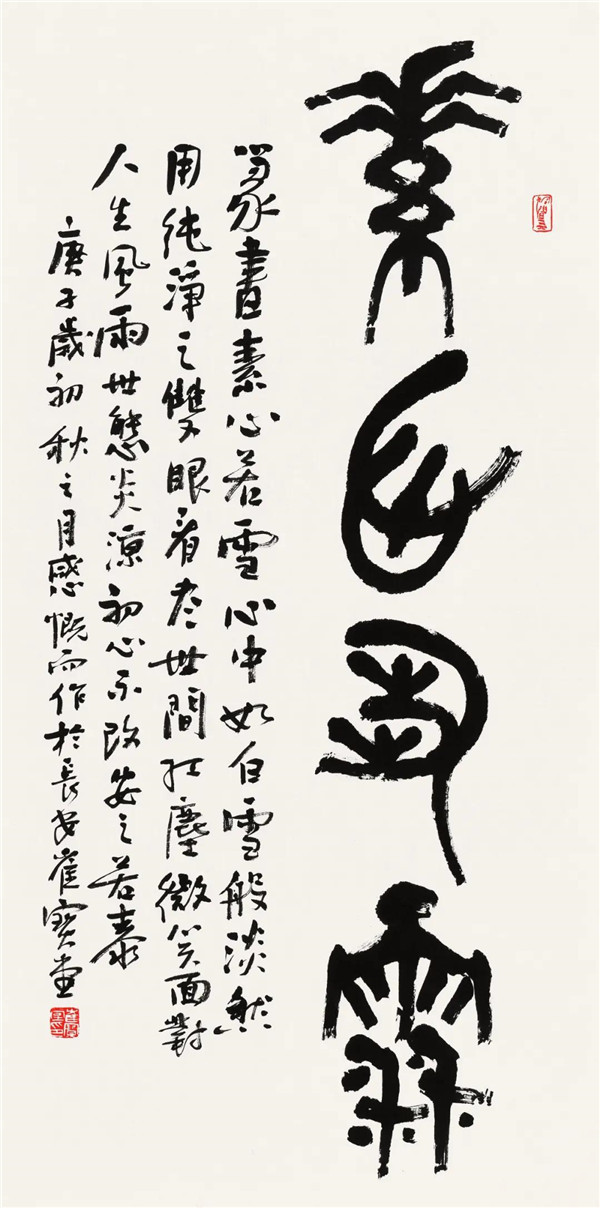 素心若雪
篆書素心若雪心中如白雪般淡然
用純淨之雙眼看尽世間红塵微笑面對
人生風雨世態炎涼初心不改安之若泰
庚子歲初秋之月感慨而作於長安崔寶堂